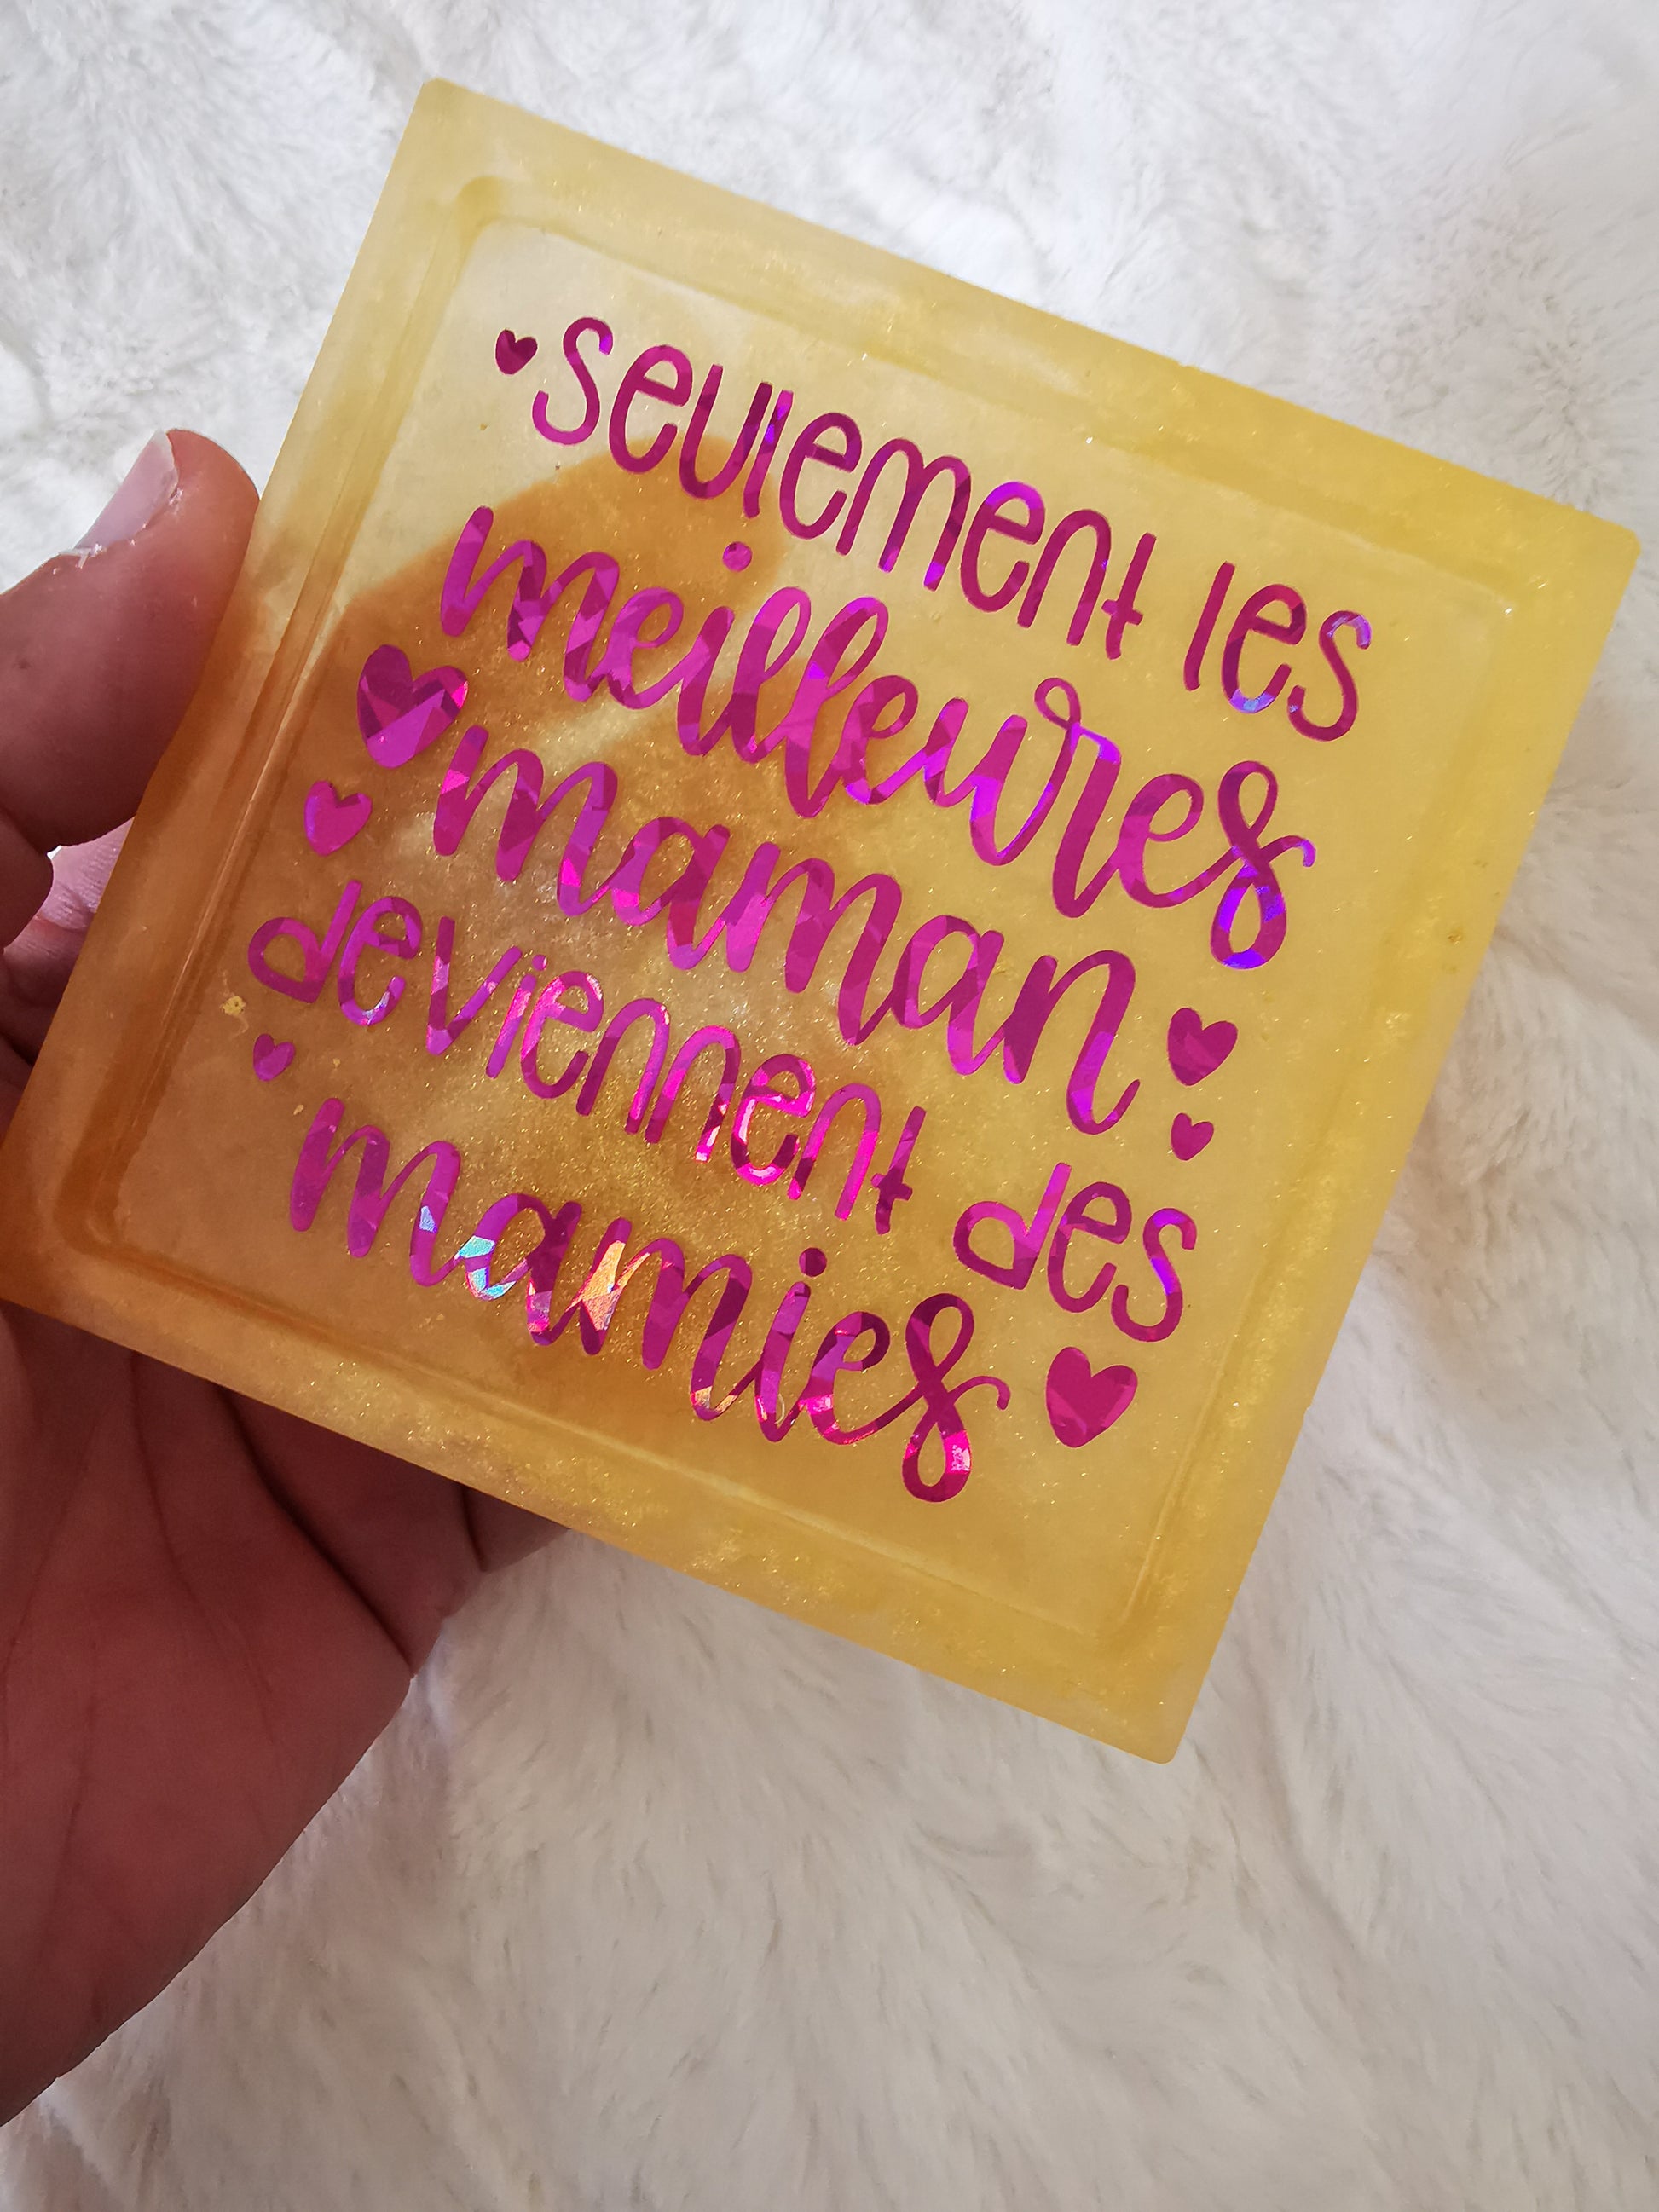 seulement les
meilleures
maman
deviennent des
mamies